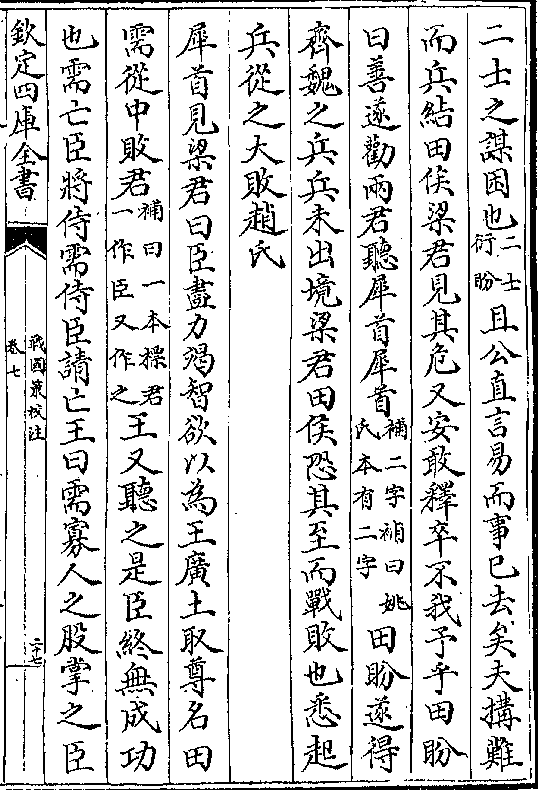 二士之謀困也二士衍盼且公直言易而事已去矣夫搆難
而兵結田侯梁君見其危又安敢釋卒不我予乎田盼
曰善遂勸兩君聽犀首犀首補二字補曰姚氏本有二字田盼遂得
齊魏之兵兵未出境梁君田侯恐其至而戰敗也悉起
兵從之大敗趙氏
犀首見梁君曰臣盡力竭智欲以為王廣土取尊名田
需從中敗君補曰一本摽君一作臣又作之王又聽之是臣終無成功
也需亡臣將侍需侍臣請亡王曰需寡人之股掌之臣
欽定四庫全書
戰國策校注
卷七
二十七